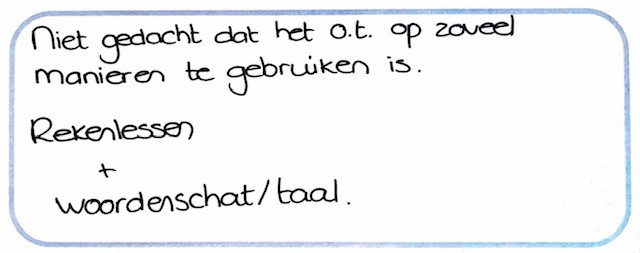 Niet gedacht dat het o.t. op zoveel
manieren te gebruiken is.
Rekenlessen
+
woordenschat/taal.